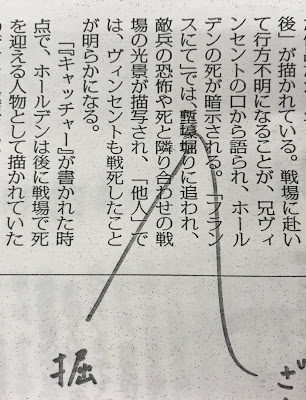 後」が描かれている。戦場に赴い
て行方不明になることが、兄ヴィ
ンセントの口から語られ、ホール
デンの死が暗示される。「フラン
スにて」では、塹壕堀りに追われ、
敵兵の恐怖や死と隣り合わせの戦
場の光景が描写され、「他人」で
は、ヴィンセントも戦死したこと
が明らかになる。
『キャッチャー』が書かれた時
点で、ホールデンは後に戦場で死
を迎える人物として描かれていた
ざ
掘